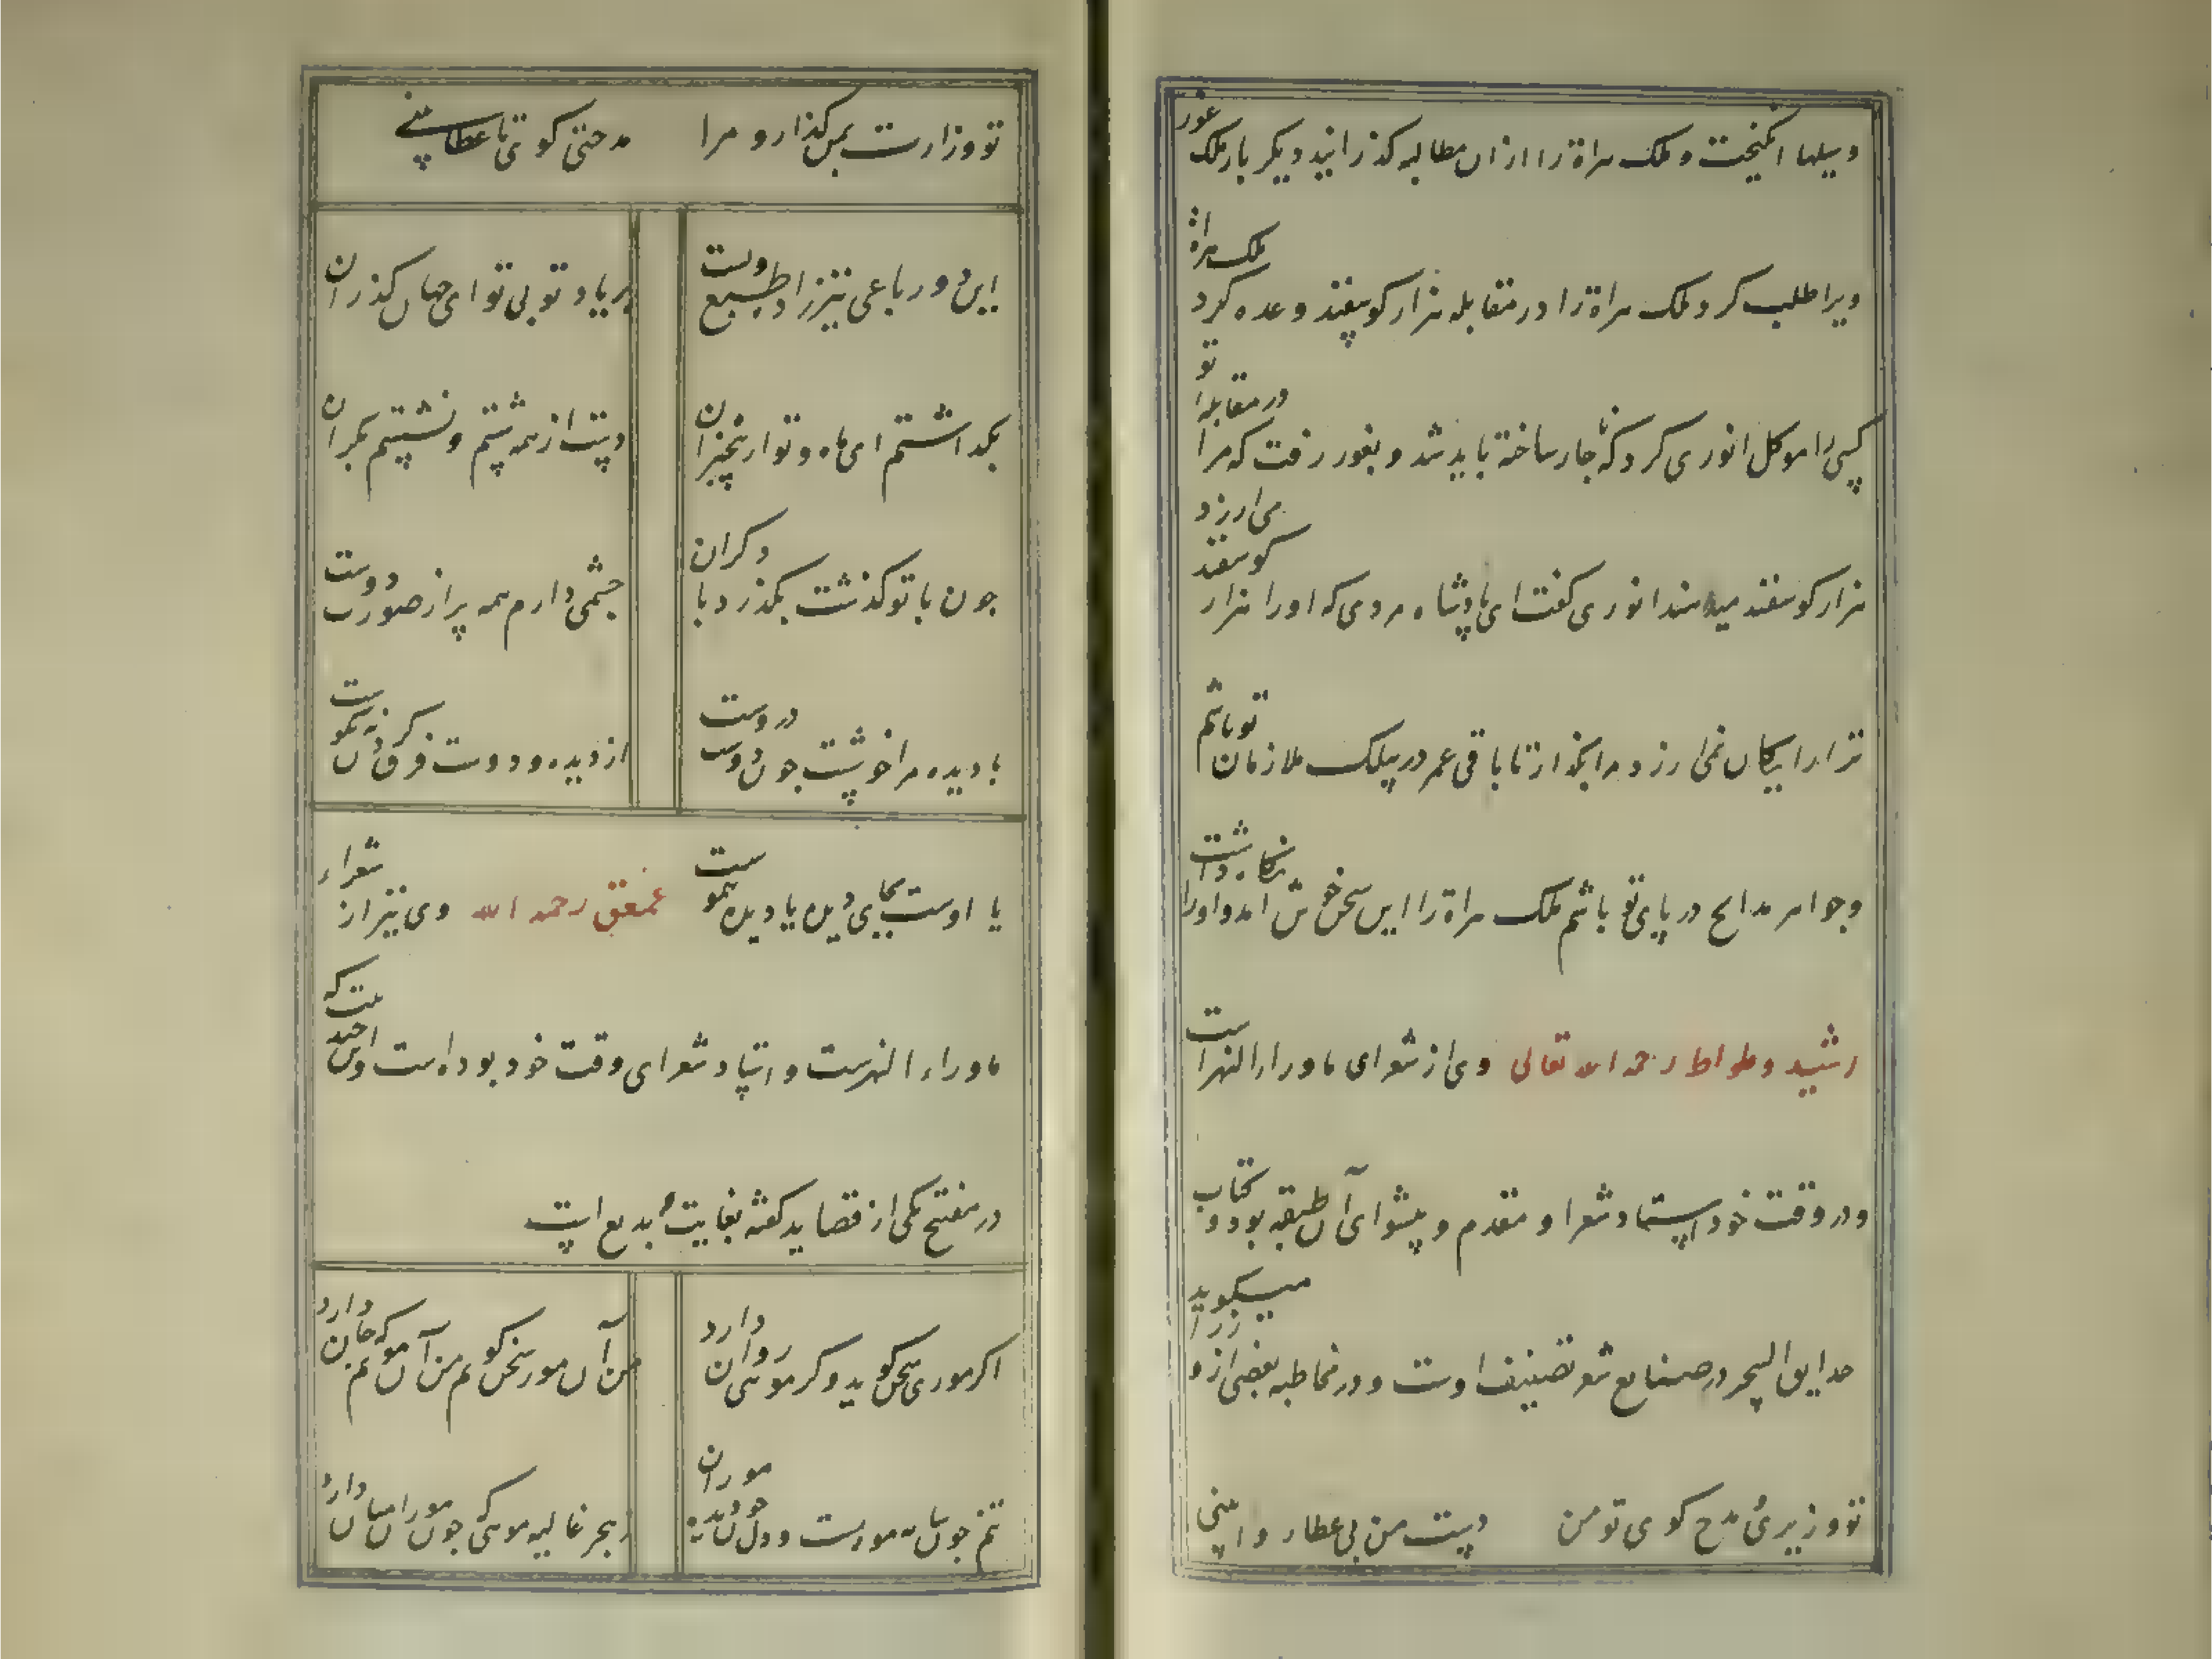 وسیلها انکیخت و ملک هراة را از ان مطالبه کذرانید دیکر بار ملک غور
ویرا طلب کرد و ملک هراة را در مقابله هزار کوسفند وعده کرد ملک هراة
کسی را موکل انوری کرد که جار ساخته باید شد و بغور رفت که مرا در مقابله تو
هزار کوسفند میدهند انوری کفت ای پادشاه مردی که او را هزار کوسفند می ارزد
ترا رایکان نمی ارزد مرا بکذار تا باقی عمر در سلک ملازمان تو باشم
و جواهر مدایح در پای تو باشم ملک هراة را این سخن خوش امد و او را نکاه داشت
رشید وطواط رحمه الله تعالی وی از شعرای ماوراء النهر است
و در وقت خود استاد شعرا و مقدم و پیشوای آن طبقه بود و کتاب
حدایق السحر در صنایع شعر تصنیف اوست و در مخاطبه بعضی از وزرا میکوید
تو وزیری و مدح کوی تو من دست من بی عطا روا بینی
تو وزارت بمن کذار و مرا مدحتی کوی تا عطا بینی
این دو رباعی نیز زاده طبع وست بر یاد تو بی تو ای جهان کذران
بکذاشتم ای ماه و تو از بیخبران دست از همه شستم و نشستم بکران
چون با تو کذشت بکذرد با دکران چشمی دارم همه پر از صورت دوست
با دیده مرا خوشست چون دوست دروست از دیده و دوست فرق کردن نه نکوست
یا اوست بجای دیده یا دیده هموست عمعق رحمه الله وی نیز از شعراء
ماوراء النهرست و استاد شعرای وقت خود بوده است و
در مفتتح یکی از قصاید کفته بغایت بدیع است
اکر موری سخن کوید و کر مویی روان دارد من آن مور سخن کویم من آن مویم که جان دارد
تنم چون سایه مویست و دل چون دیده موران ز هجر غالیه مویی که چون موران میان دارد